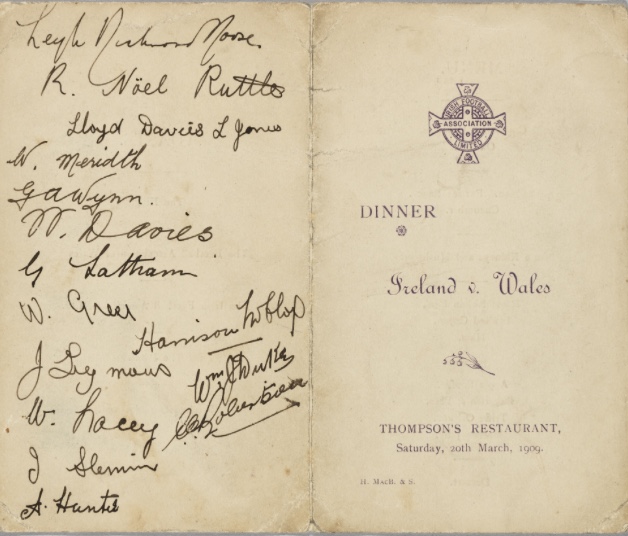 Leigh Richmond Roose.
R. Nöel Ruttles
Lloyd Davies L Jones
W. Meredith
G A Wynn.
W. Davies
G Latham
W. Greer
Harrison
J Seymour
Wm J
W. Lacey
C. Robertson
J Slemin
A. Hunter
IRISH FOOTBALL
ASSOCIATION
LIMITED
DINNER
Ireland v. Wales
THOMPSON'S RESTAURANT,
Saturday, 20th March, 1909.
H. MacH. & S.